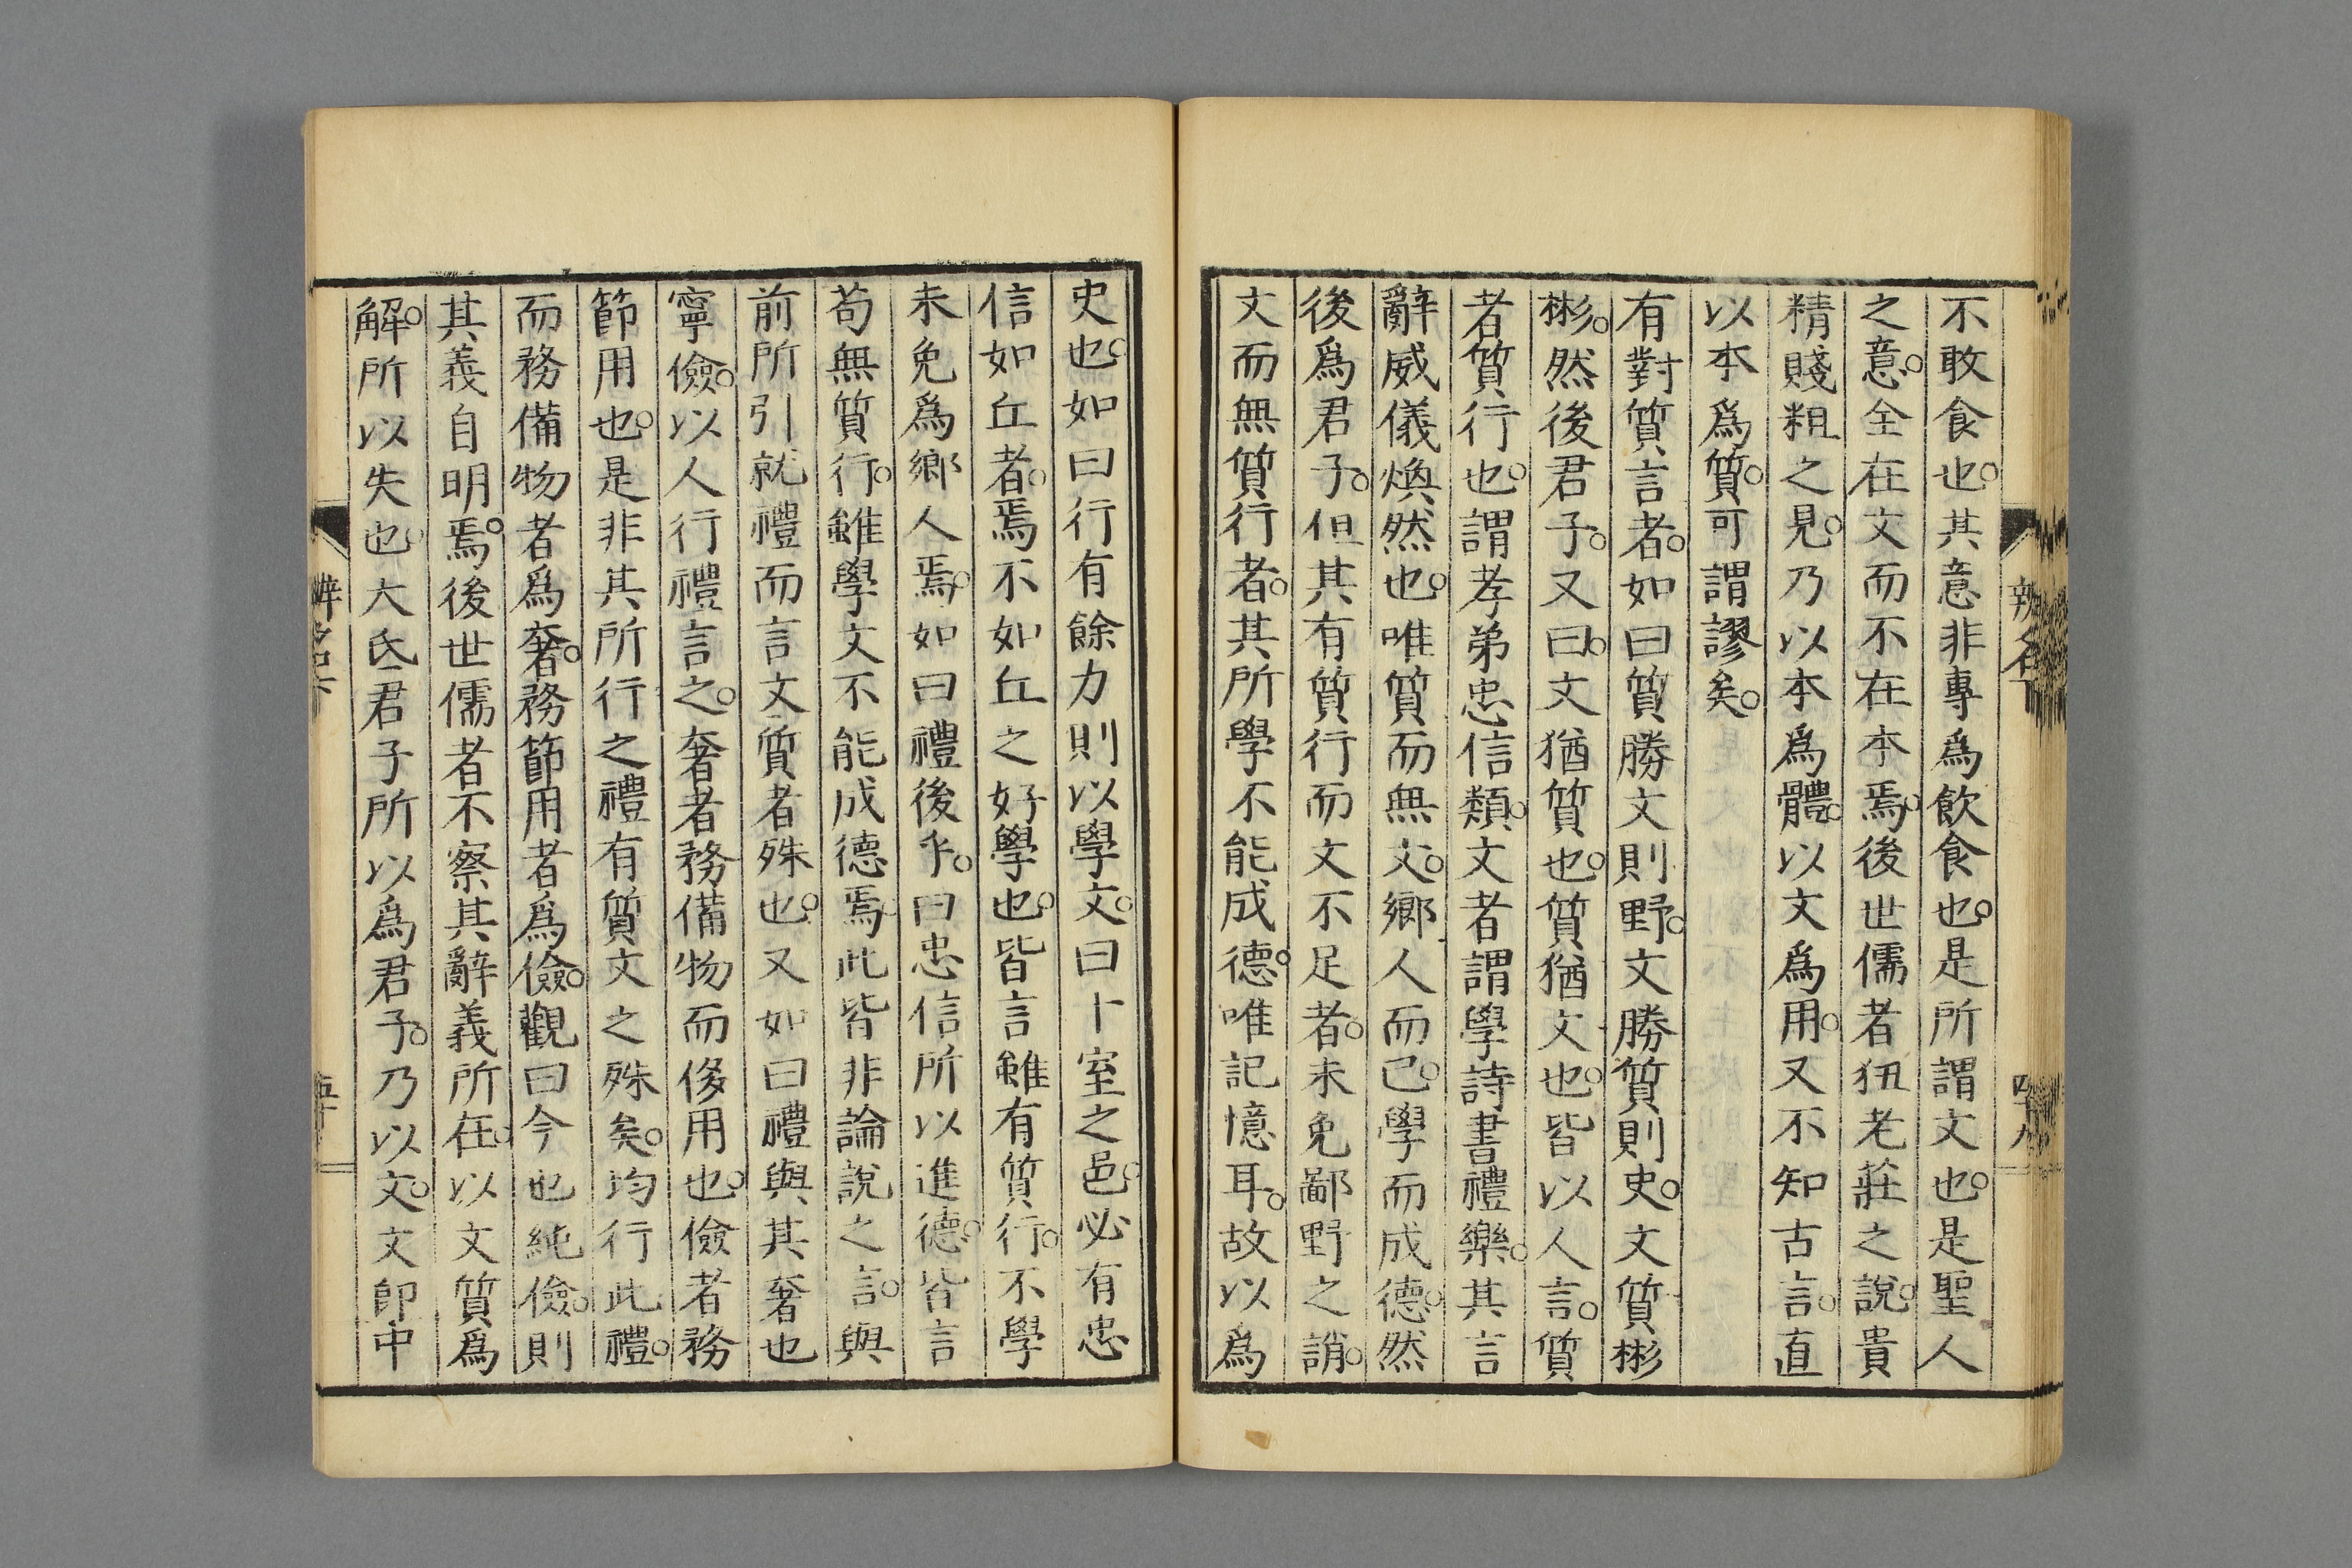 不敢食也。其意非專爲飲食也。是所謂文也。是聖人
之意。全在文而不在本焉。後世儒者狃老莊之說。貴
精賤粗之見。乃以本爲體。以文爲用。又不知古言。直
以本爲質。可謂謬矣。
有對質言者。如曰質勝文則野。文勝質則史。文質彬
彬。然後君子。又曰。文猶質也。質猶文也。皆以人言。質
者質行也。謂孝弟忠信類。文者謂學詩書禮樂。其言
辭威儀煥然也。唯質而無文。鄉人而已。學而成德。然
後爲君子。但其有質行而文不足者。未免鄙野之誚。
文而無質行者。其所學不能成德。唯記憶耳。故以爲
史也。如曰行有餘力則以學文。曰十室之邑。必有忠
信如丘者。焉不如丘之好學也。皆言雖有質行。不學
未免爲鄉人焉。如曰禮後乎。曰忠信所以進德。皆言
苟無質行。雖學文不能成德焉。此皆非論說之言。與
前所引就禮而言文質者殊也。又如曰禮與其奢也
寧儉。以人行禮言之。奢者務備物而侈用也。儉者務
節用也。是非其所行之禮有質文之殊矣。均行此禮。
而務備物者爲奢。務節用者爲儉。觀曰今也純儉。則
其義自明焉。後世儒者不察其辭義所在。以文質爲
解。所以失也。大氐君子所以爲君子。乃以文。文卽中
辨名下
五十